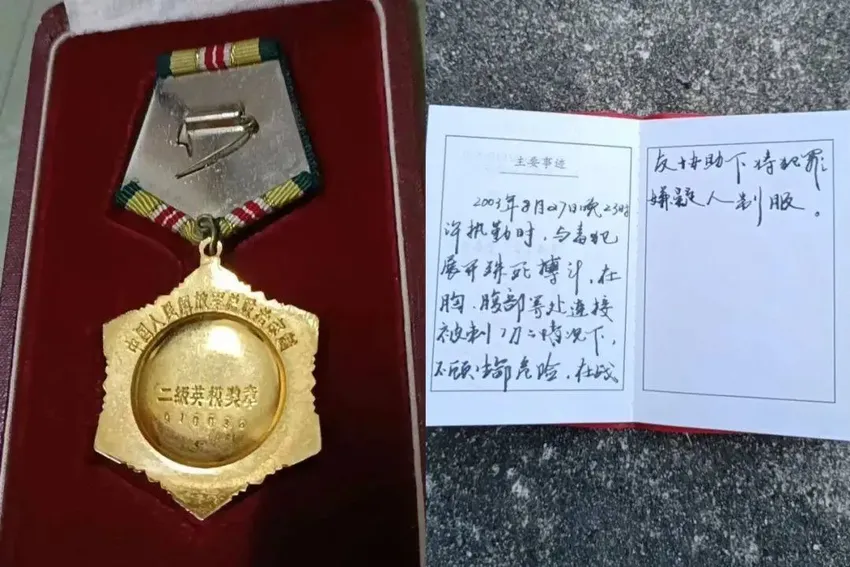 中国人民解放军总政治部
二级英模奖章
主要事迹
2003年8月27日晚23时
许执勤时，与毒犯
展开殊死搏斗，在
胸、腹部等处连接
被刺7刀的情况下，
不顾生命危险，在战
友协助下将犯罪
嫌疑人制服。